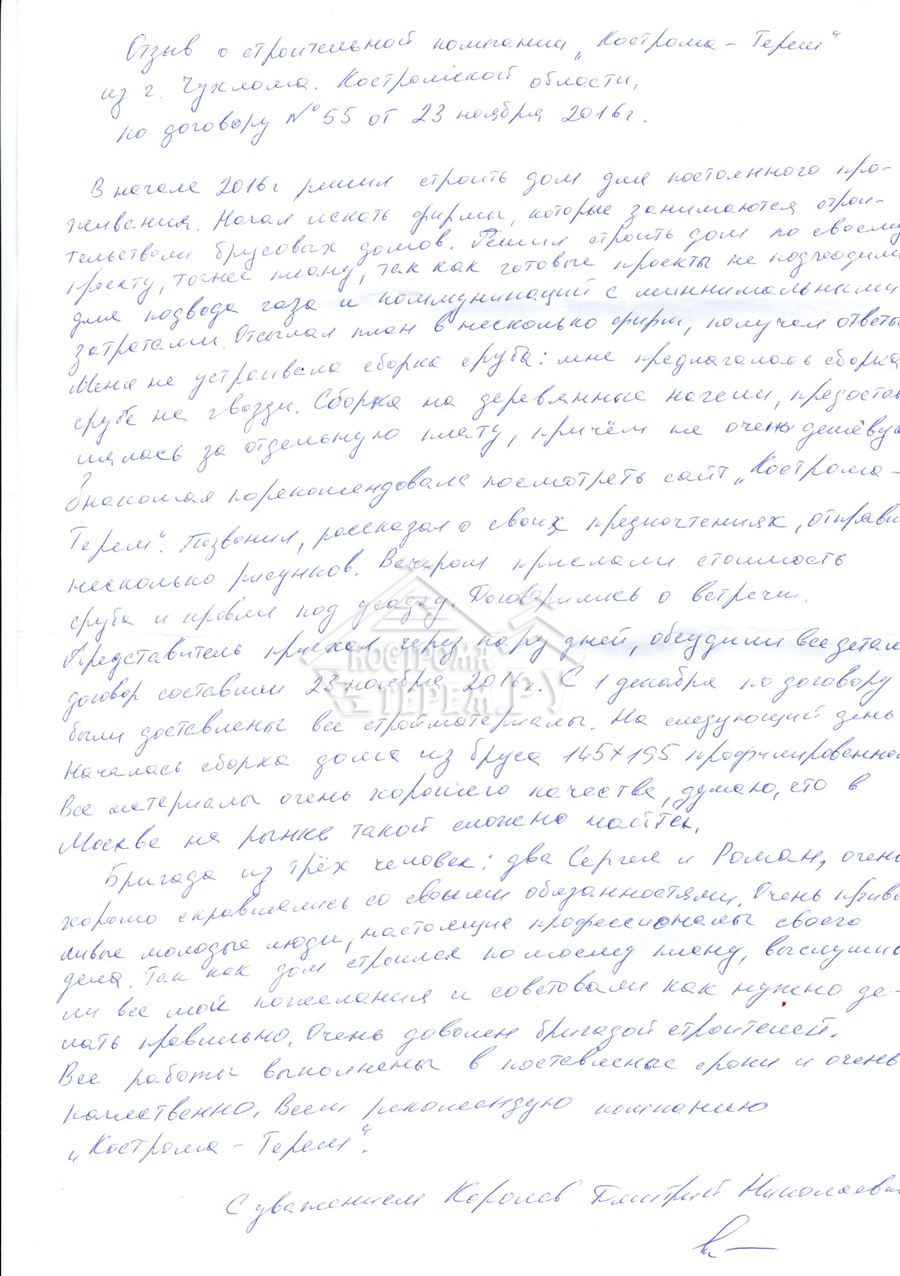 Отзыв о строительной компании „Кострома - Терем“
из г. Чухлома. Костромской области,
по договору №55 от 23 ноября 2016г.
В начале 2016г решил строить дом для постоянного про-
живания. Начал искать фирмы, которые занимаются строи-
тельством брусовых домов. Решил строить дом по своему
проекту, точнее плану, так как готовые проекты не подходили
для подвода газа и коммуникаций с минимальными
затратами. Отсылал план в несколько фирм, получал ответы
Меня не устроивала сборка сруба: мне предлагалось сборка
сруба на гвозди. Сборка на деревянные нагели, предостав
лялась за отдельную плату, причём не очень дешёвую
Знакомая порекомендовала посмотреть сайт „Кострома-
Терем“. Позвонил, рассказал о своих предпочтениях, отправи
несколько рисунков. Вечером прислали стоимость
сруба и кровли под усадку. Договорились о встречи.
Представитель приехал через пару дней, обсудили все детал
договор составили 23 ноября 2016г. С 1 декабря по договору
были доставлены все стройматериалы. На следующий день
Началась сборка дома из бруса 145х195 профилированног
Все материалы очень хорошего качества, думаю, что в
Москве на рынке такой сложно найти.
Бригада из трёх человек: два Сергея и Роман, очень
хорошо справились со своими обязанностями. Очень приве
ливые молодые люди, настоящие профессионалы своего
дела. Так как дом строился по моему плану, выслушив
ли все мои пожелания и советовали как нужно де-
лать правильно. Очень доволен бригадой строителей.
Все работы выполнены в поставленые сроки и очень
качественно. Всем рекомендую компанию
„Кострома - Терем“.
С уважением Королев Дмитрий Николаеви
КОСТРОМА
ТЕРЕМ.РУ